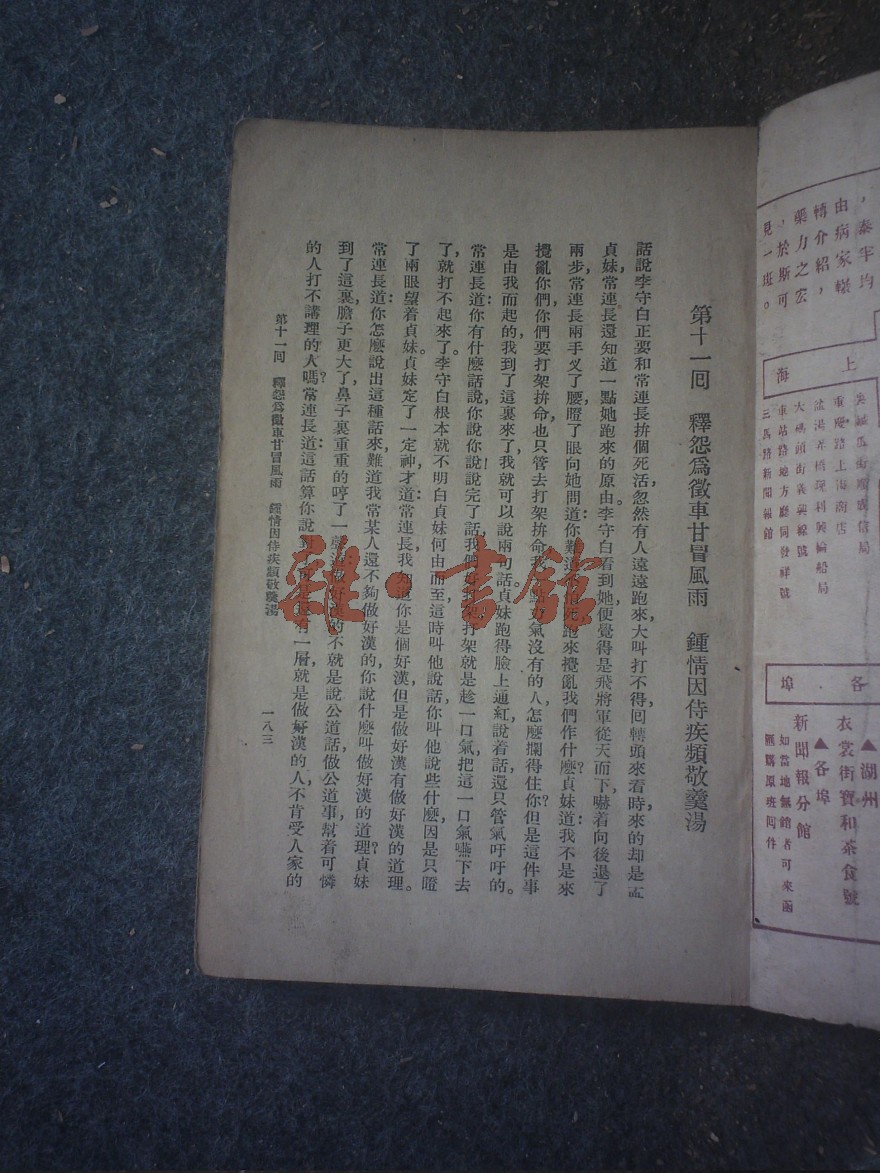 第十一回　釋怨爲徵車甘冒風雨　鍾情因侍疾頻敬羹湯
話說李守白正要和常連長拚個死活，忽然有人遠遠跑來大叫打不得，回轉頭來看時，來的却是孟
貞妹，常連長還知道一點她跑來的原由。李守白看到她，便覺得是飛將軍從天而下，嚇着向後退了
兩步，常連長兩手叉了腰，瞪了眼向她問道：你難道不怕死，跑來攪亂我們作什麼？貞妹道：我不是來
攪亂你們，你們要打架拚命，也只管去打架拚命，我一點力氣沒有的人，怎麼攔得住你，但是這件事
是由我而起的，我到了這裏來了，我就可以說兩句話。貞妹跑得臉上通紅，說着話，還只管氣吁吁的。
常連長道：你有什麼話說，你說你說，說完了話，我們好打架，打架就是趁一口氣，把這一口氣嚥下去
了，就打不起來了。李守白根本就不明白貞妹何由而至，這時叫他說話，你叫他說些什麼，因是只瞪
了兩眼望着貞妹。貞妹定了一定神，才道：常連長，我知道你是個好漢，但是做好漢有做好漢的道理。
常連長道：你怎麼說出這種話來，難道我常某人還不夠做好漢的，你說什麼叫做好漢的道理？貞妹
到了這裏，膽子更大了，鼻子裏重重的哼了一聲道：做好漢的，不就是說公道話，做公道事，幫着可憐
的人打不講理的人嗎？常連長道：這話算你說對了，可是還有一層，就是做好漢的人，不肯受人家的
第十一回　釋怨爲徵車甘冒風雨　鍾情因侍疾頻敬羹湯
一八三
雜·書館
，泰半均
由病家輾
轉介紹，
藥力之宏
，於斯可
見一斑。
上海
重慶路上海商店
大碼頭街義興線號
車站路地方廳同發祥號
三馬路新聞報館
各埠
▲湖州
衣裳街寶和茶食號
▲各埠
新聞報分館
如當地無銷者可來函